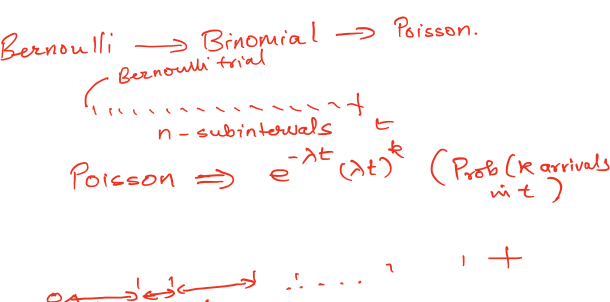 Bernoulli → Binomial → Poisson.
Bernoulli trial
n - subintervals t
Poisson ⇒ e^{-λt} (λt)^k (Prob (k arrivals
in t)
0